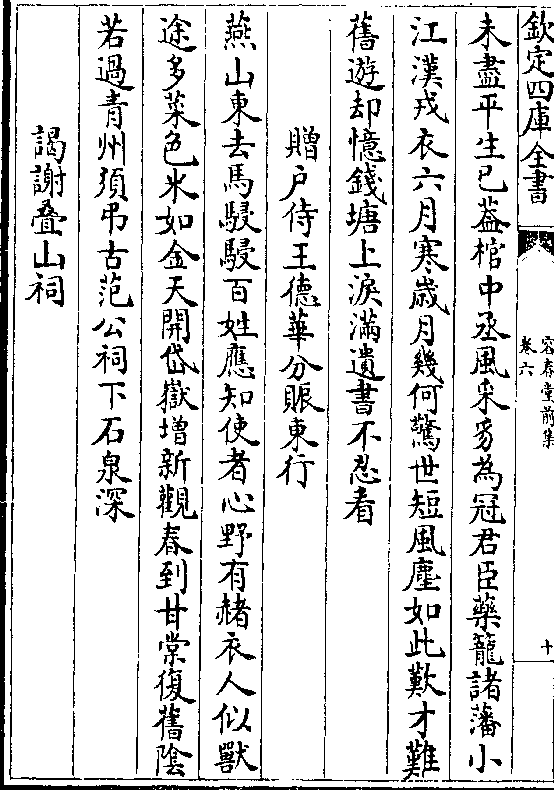 欽定四庫全書
容春堂前集
卷六
十
未盡平生已葢棺中丞風采豸為冠君臣藥籠諸藩小
江漢戎衣六月寒歳月幾何驚世短風塵如此歎才難
舊遊却憶錢塘上淚滿遺書不忍看
贈户侍王德華分賑東行
燕山東去馬駸駸百姓應知使者心野有赭衣人似獸
途多菜色米如金天開岱嶽增新觀春到甘棠復舊陰
若過青州須弔古范公祠下石泉深
謁謝叠山祠